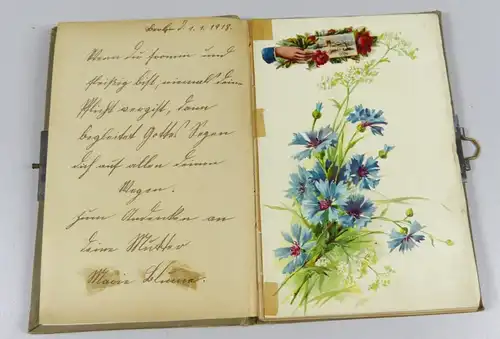 d. 1.1.1918.
Wenn du fromm und
fleißig bist, niemals deine
Pflicht vergißt, dann
begleitet Gottes Segen
dich auf allen deinen
Wegen.
Zum Andenken an
deine Mutter
Marie Blume.